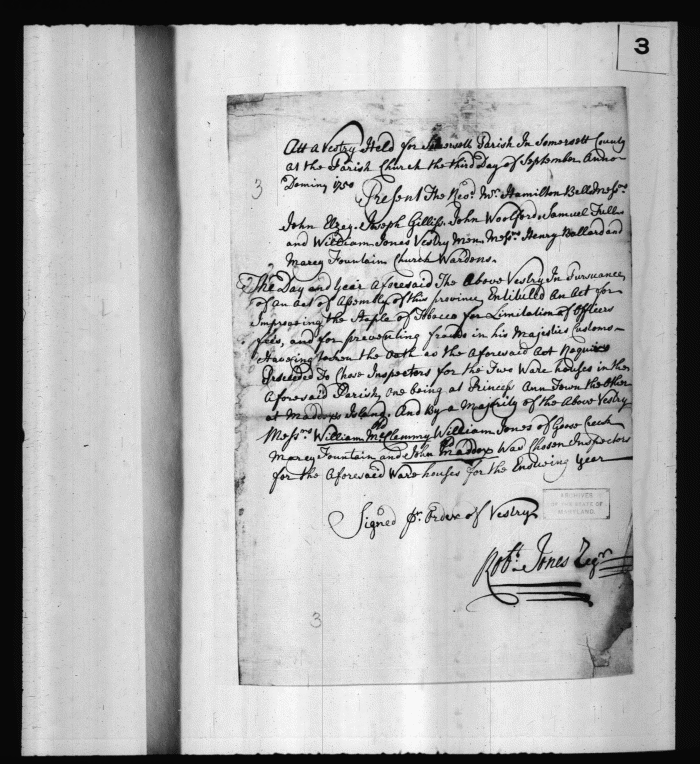 3
Att a Vestry Held for Somersett Parish In Somersett County
at the Parish Church the third Day of September Anno
Dominy 1750
3
Present The Revd. Mr. Hamilton Bell Messrs
John Elzey, Joseph Gilliss, John Woolford, Samuel Tull
and William Jones Vestry Men, Messrs. Henry Ballard and
Marcy Fountain Church Wardens.
The Day and Year Aforesaid The Above Vestry In Pursuance
of an Act of Assembly of this province Entituled An Act for
Improveing the Staple of Tobacco for Limitation of Officers
fees, and for preventing frauds in his Majesties Customs
Haveing taken the Oath as the Aforesaid Act Requires
Proceeded To Chose Inspectors for the Two Ware houses in the
Aforesaid Parish, one being at Princess Ann Town the other
at Maddoxs Island, And By a Majority of the Above Vestry
Messrs William McClemmy William Jones of Goose Creek
Marcy Fountain and John Maddox Was Chosen Inspectors
for the Aforesaid Ware houses for the Ensuing Year
Signed pr. Order of Vestry
ARCHIVES
OF THE STATE OF
MARYLAND
Robt. Jones Regr
3